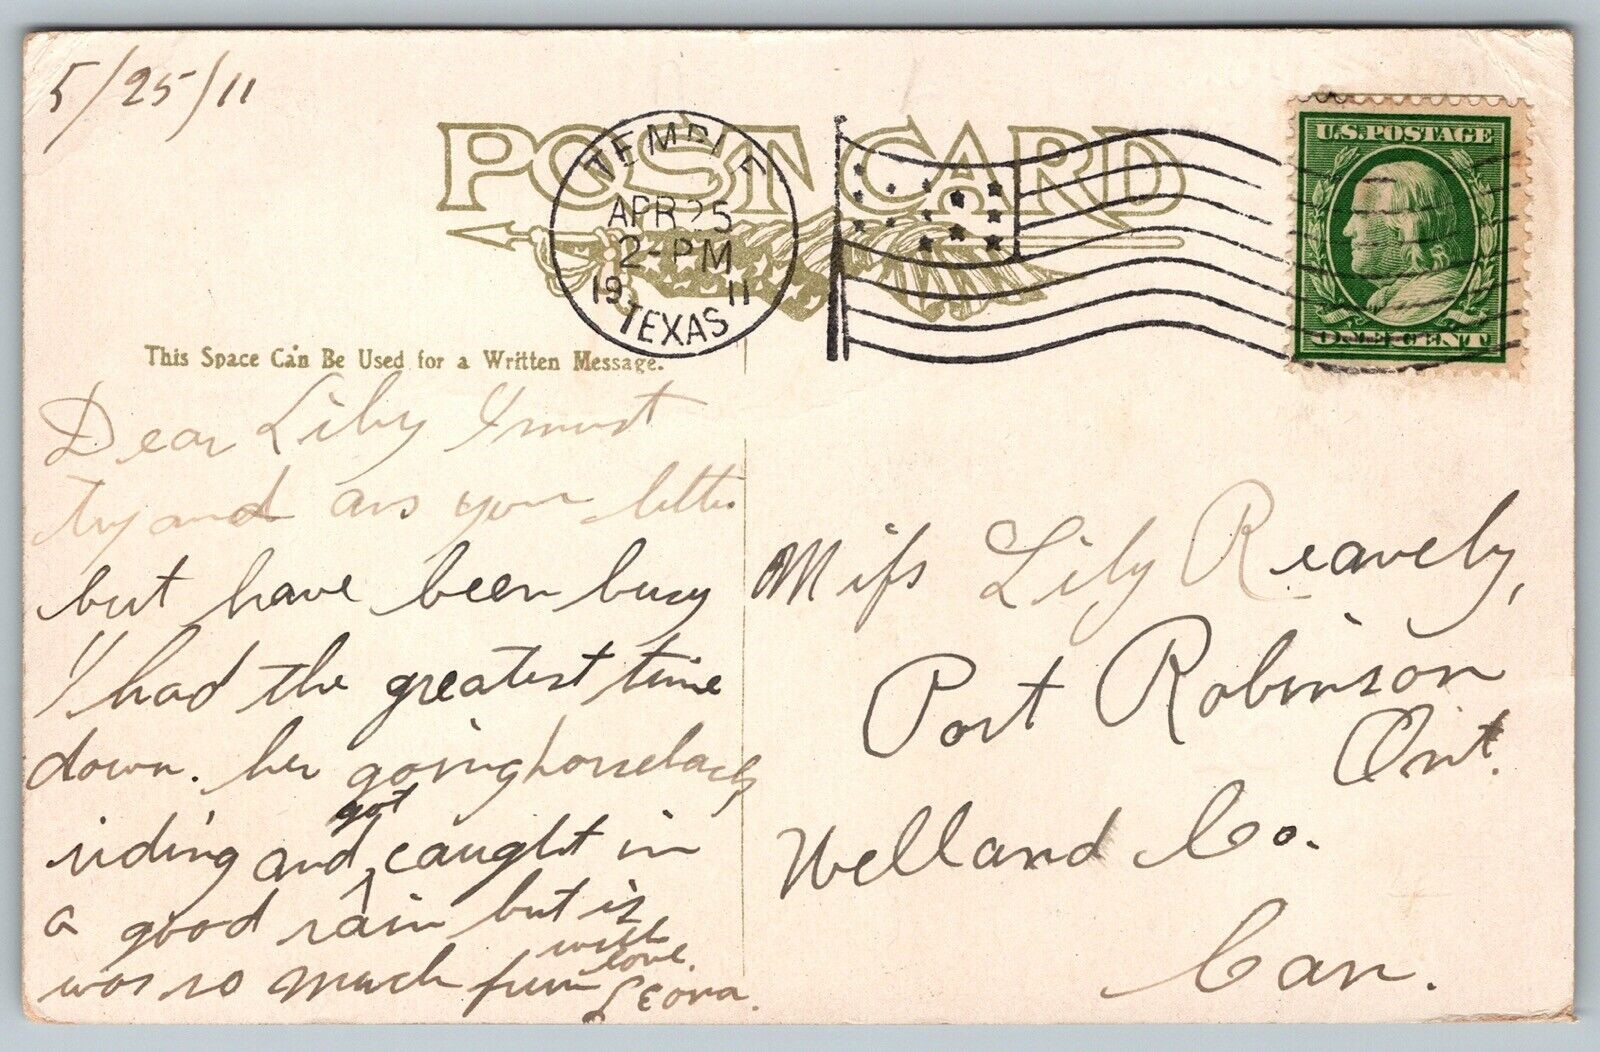 5/25/11
POST CARD
TEMPLE
APR 25
2-PM
19 11
TEXAS
U.S. POSTAGE
ONE CENT
This Space Can Be Used for a Written Message.
Dear Lily I must
try and ans your letter
but have been busy
I had the greatest time
down. her going horseback
riding and got caught in
a good rain but is
was so much fun with
love.
Leona.
Miss Lily Reavely,
Port Robinson
Ont.
Welland Co.
Can.